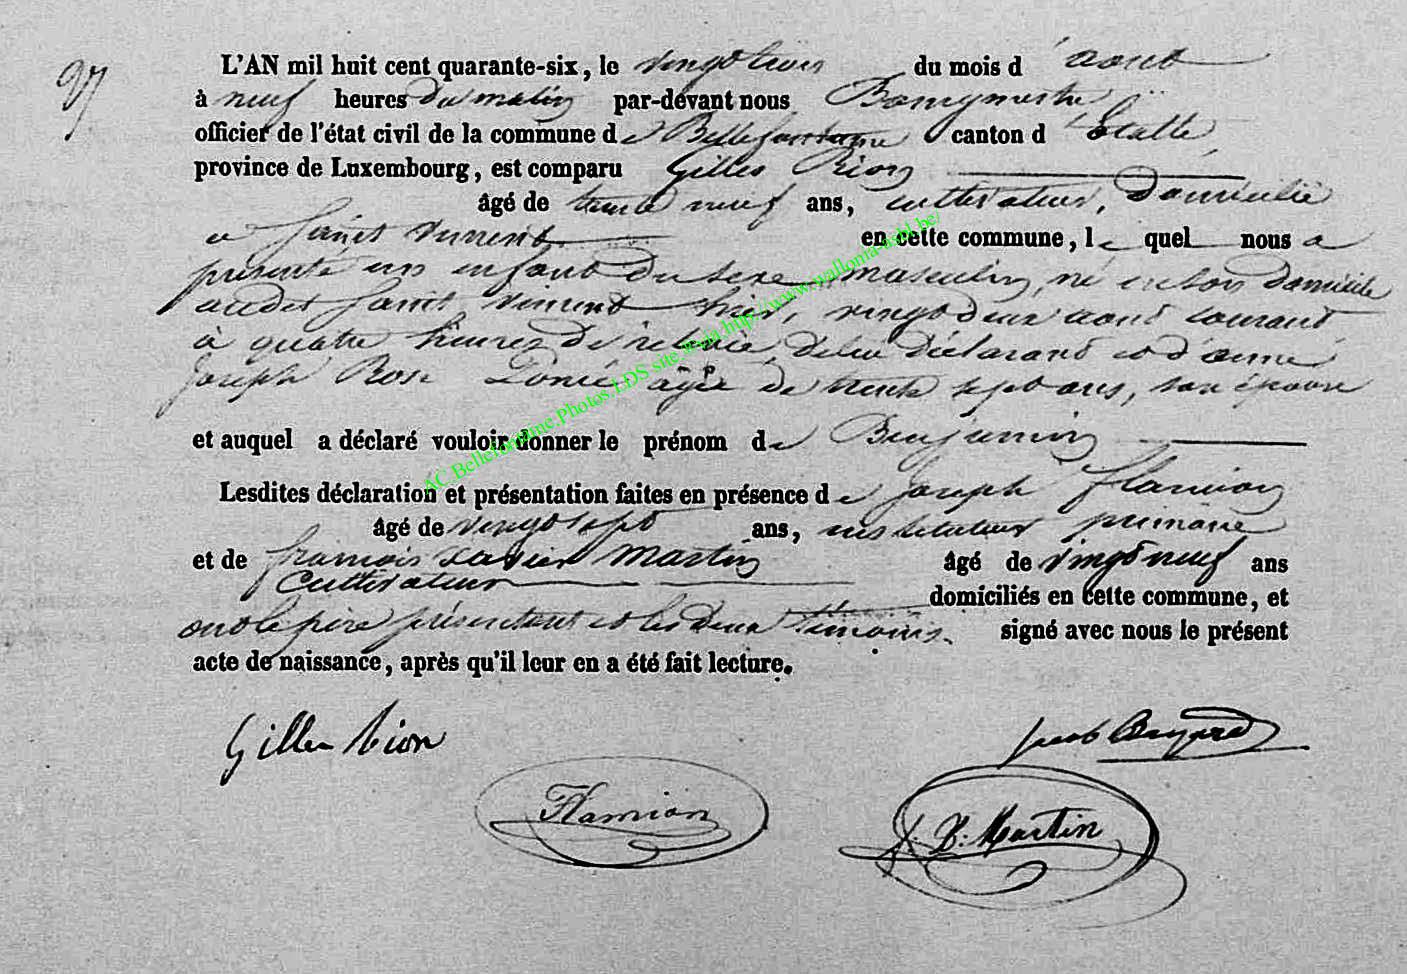 27
L'AN mil huit cent quarante-six, le vingt trois du mois d'aout
à neuf heures du matin par-devant nous Bourgmestre
officier de l'état civil de la commune de Bellefontaine canton d'Etalle,
province de Luxembourg, est comparu Gilles Rion
âgé de trente neuf ans, cultivateur, domicilié
a Saint Vincent en cette commune, lequel nous a
présenté un enfant du sexe masculin, né en son domicile
audit Saint Vincent hier, vingt deux aout courant
à quatre heures de rélevée, de lui déclarant et d'
Joseph Rose agée de trente sept ans, son épouse
et auquel a déclaré vouloir donner le prénom de Benjamin
Lesdites déclaration et présentation faites en présence de Joseph Flamion
âgé de vingt sept ans, instituteur primaire
et de françois Xavier Martin âgé de vingt neuf ans
cultivateur
domiciliés en cette commune, et
ont le père présentant et les deux témoins signé avec nous le présent
acte de naissance, après qu'il leur en a été fait lecture.
Gilles Rion
Flamion
Martin
AC.Bellefontaine.Photos.LDS site via http://www.wallonia-asbl.be/